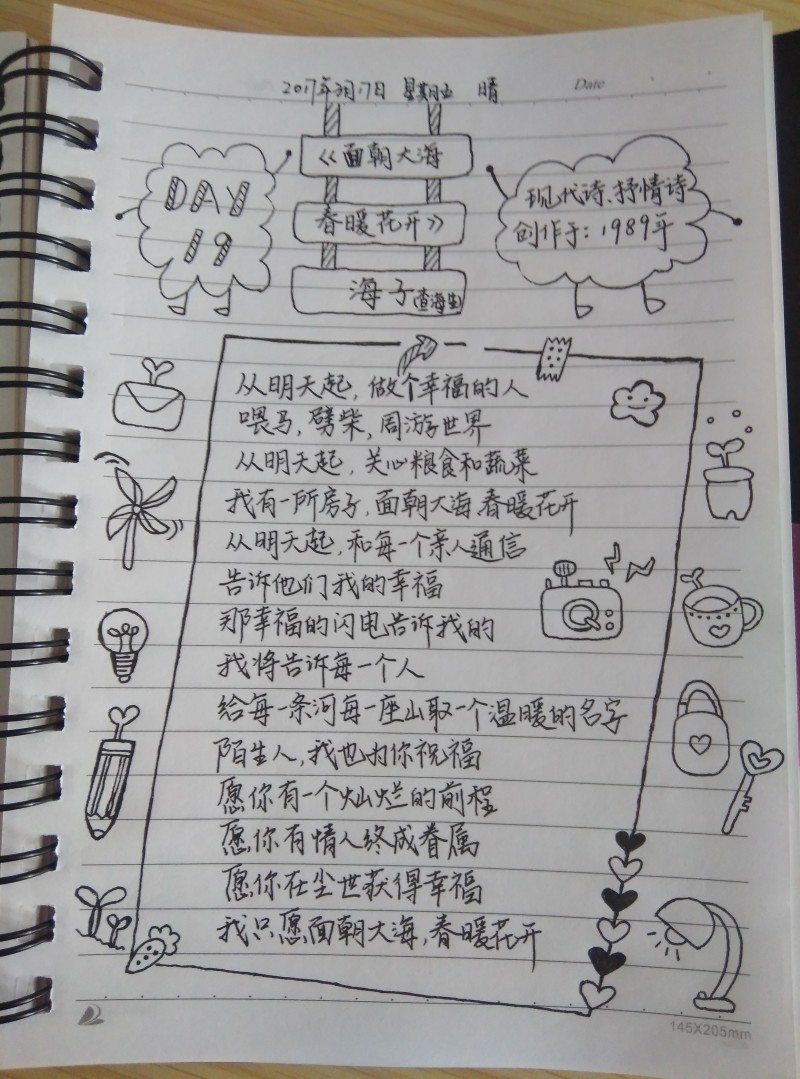 2017年3月17日 星期五 晴
Date
DAY
19
《面朝大海
春暖花开》
海子(查海生)
现代诗、抒情诗
创作于：1989年
从明天起，做个幸福的人
喂马，劈柴，周游世界
从明天起，关心粮食和蔬菜
我有一所房子，面朝大海，春暖花开
从明天起，和每一个亲人通信
告诉他们我的幸福
那幸福的闪电告诉我的
我将告诉每一个人
给每一条河每一座山取一个温暖的名字
陌生人，我也为你祝福
愿你有一个灿烂的前程
愿你有情人终成眷属
愿你在尘世获得幸福
我只愿面朝大海，春暖花开
145X205mm